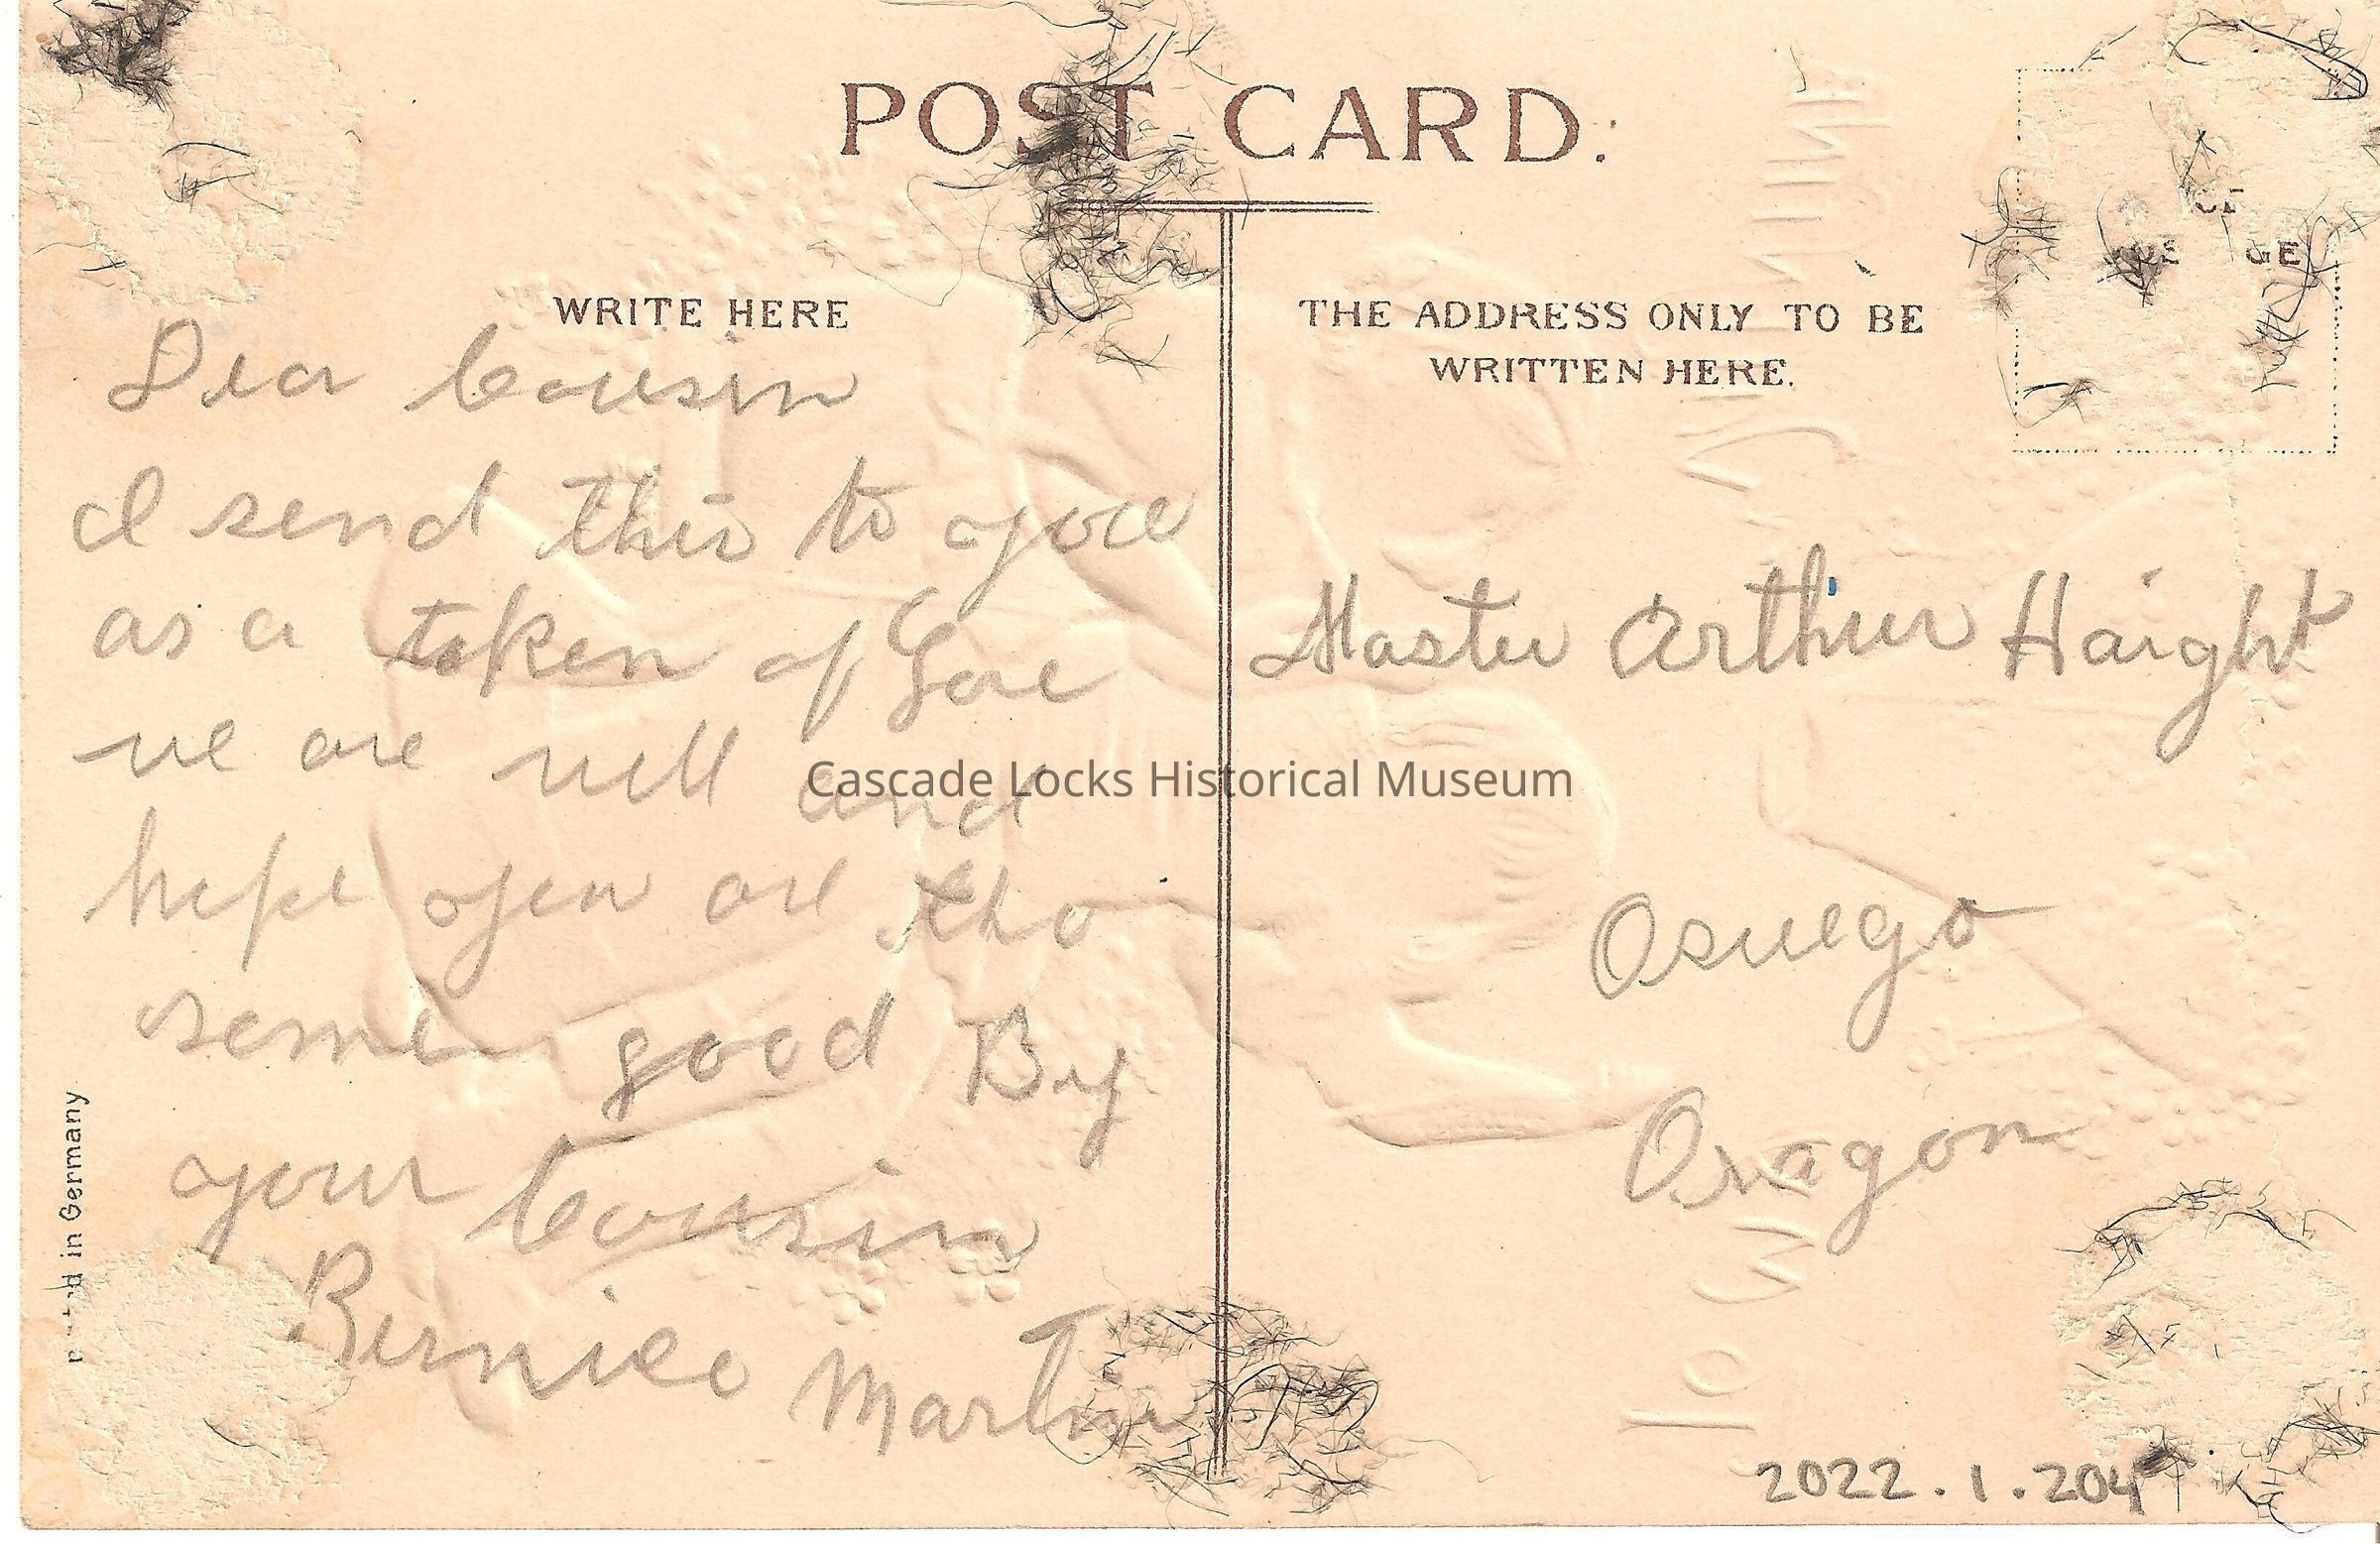 POST CARD.
WRITE HERE
THE ADDRESS ONLY TO BE
WRITTEN HERE.
Dear Cousin
I send this to you
as a token of Love
we are well and
hope you are the
same good By
your Cousin
Bernice Martin
Master Arthur Haight
Oswego
Oragon
Cascade Locks Historical Museum
in Germany
2022.1.204